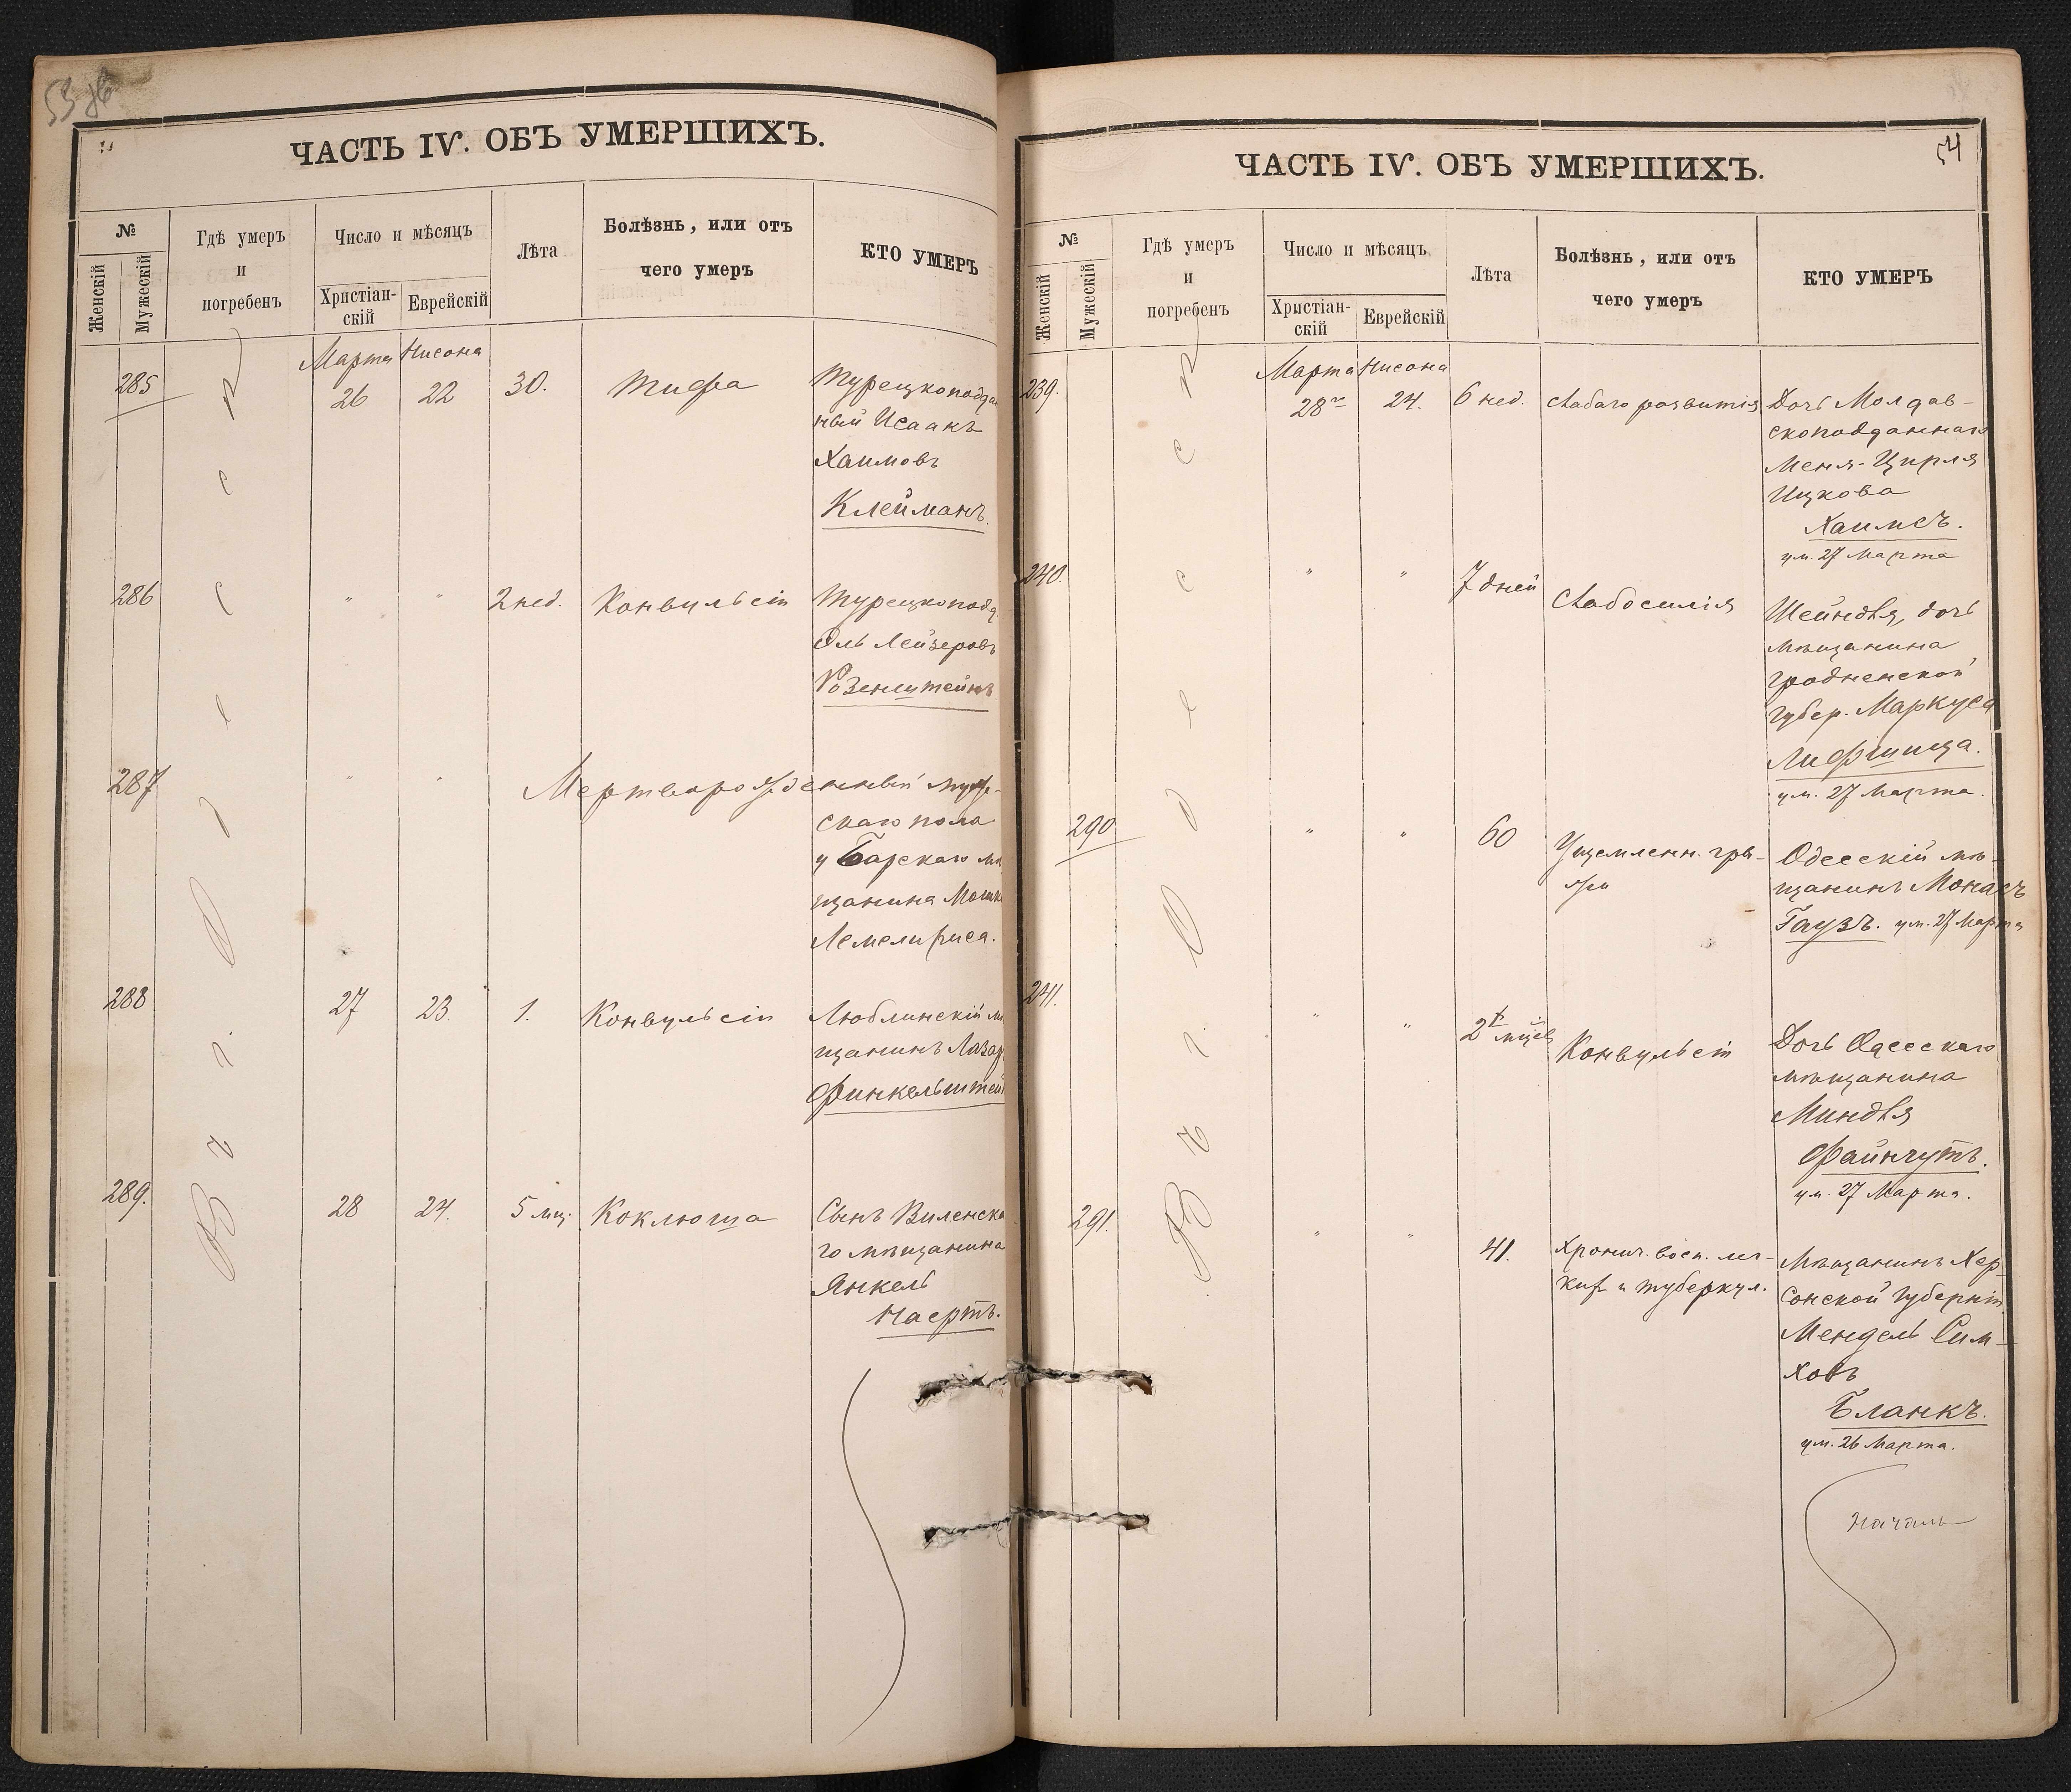 53 об
ЧАСТЬ IV. ОБЪ УМЕРШИХЪ.
№
Женскій
Мужескій
Гдѣ умеръ
и
погребенъ
Число и мѣсяцъ
Христіан-
скій
Еврейскій
Лѣта
Болѣзнь, или отъ
чего умеръ
КТО УМЕРЪ
Въ г. Одессѣ
Марта Нисона
285 26 22 30. Тифа Турецкоподдан
ный Исаакъ
Хаимовъ
Клейманъ.
286 " " 2 нед. Конвульсіи Турецкоподд.
Эль Лейзеровъ
Розенштейнъ.
287 " " Мертворожденный муже-
скаго пола
у Барскаго мѣ
щанина Мошк
288 27 23. 1. Конвульсіи Люблинскій мѣ
щанинъ Лазар
Финкельштей
289. 28 24. 5 мц. Коклюша Сынъ Виленска
го мѣщанина
Янкель
Насртъ.
54
ЧАСТЬ IV. ОБЪ УМЕРШИХЪ.
№
Женскій
Мужескій
Гдѣ умеръ
и
погребенъ
Число и мѣсяцъ
Христіан-
скій
Еврейскій
Лѣта
Болѣзнь, или отъ
чего умеръ
КТО УМЕРЪ
Въ г. Одессѣ
Марта Нисона
239. 28го 24. 6 нед. Слабаго развитія Дочь Молдав-
скоподданнаго
Меня-Цирля
Ицкова
Хаимсъ.
ум. 27 Марта
240. " " 7 дней Слабосилія Шейндля, дочь
мѣщанина
Гродненской
губер. Маркуса
Лифшица.
ум. 27 Марта.
290 " " 60 Ущемленн. гры- Одесскій мѣ-
жи щанинъ Монасъ
Гаузъ. ум. 27 Марта
241. " " 2хъ мцевъ Конвульсіи Дочь Одесскаго
мѣщанина
Миндля
Файнгутъ.
ум. 27 Марта.
291. " " 41. Хронич. восп. лег- Мѣщанинъ Хер-
кихъ и туберкул. сонской Губерніи
Мендель Сим-
ховъ
Бланкъ.
ум. 26 Марта.